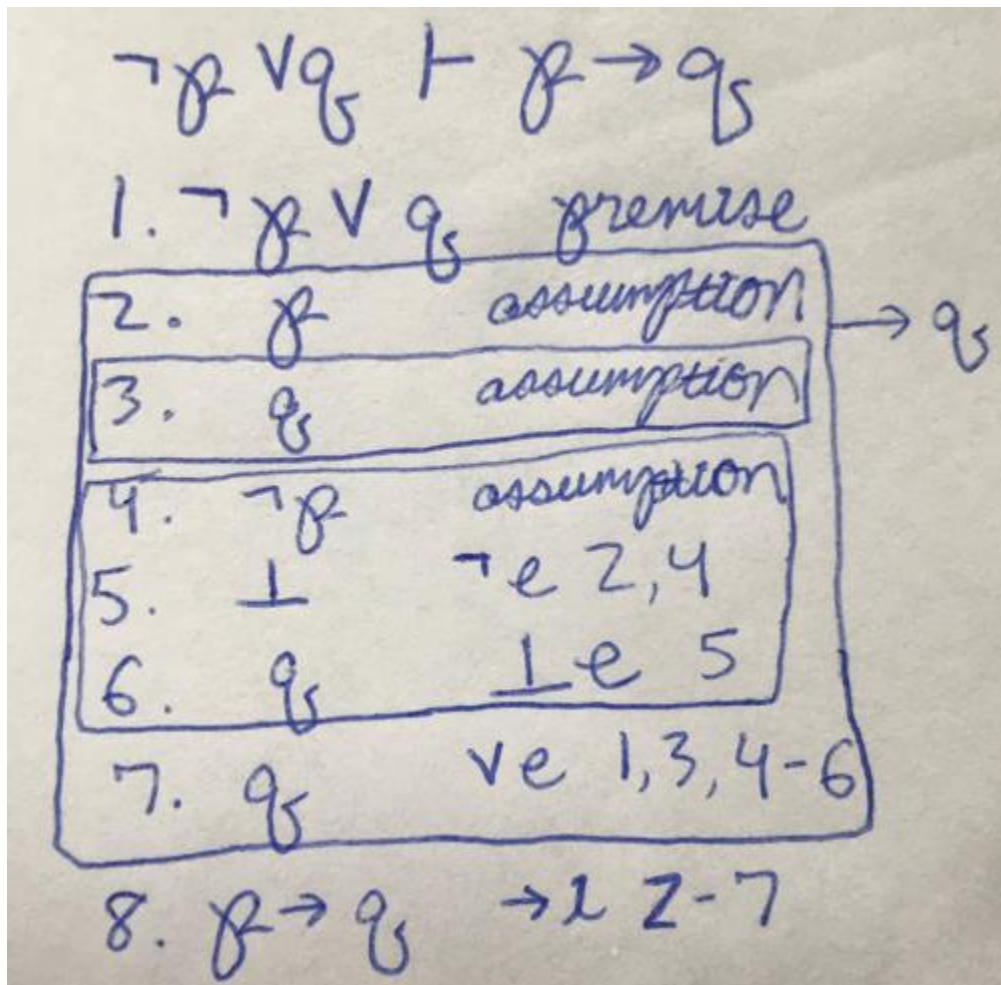 ¬p ∨ q ⊢ p → q
1. ¬p ∨ q premise
2. p assumption → q
3. q assumption
4. ¬p assumption
5. ⊥ ¬e 2,4
6. q ⊥e 5
7. q ve 1,3,4-6
8. p → q →i 2-7